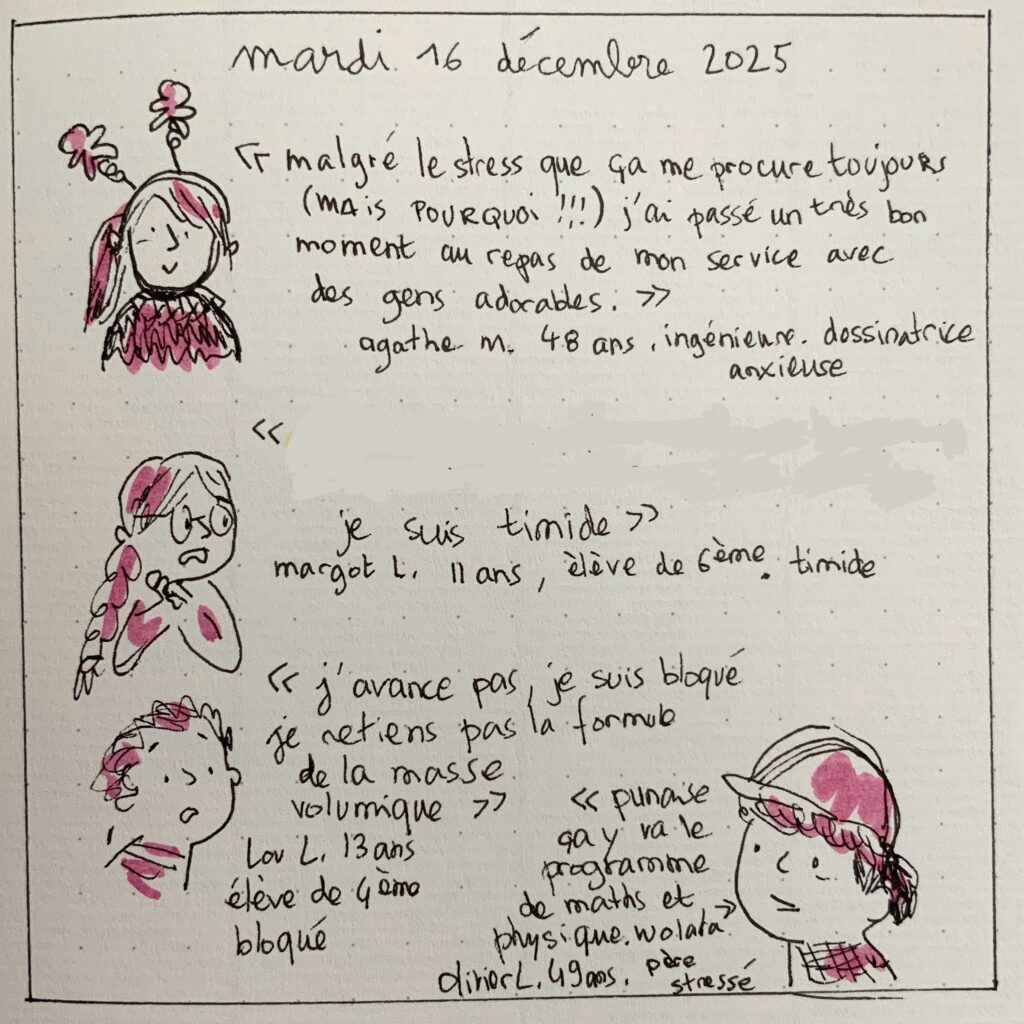 mardi 16 décembre 2025
<< malgré le stress que ça me procure toujours
(mais POURQUOI !!!) j'ai passé un très bon
moment au repas de mon service avec
des gens adorables. >>
agathe m. 48 ans, ingénieure. dessinatrice
anxieuse
<<
je suis timide >>
margot L. 11 ans, élève de 6ème. timide
<< j'avance pas, je suis bloqué
je retiens pas la formule
de la masse
volumique >>
Lou L. 13 ans
élève de 4ème
bloqué
<< punaise
ça y va le
programme
de maths et
physique. wolala >>
olivier L. 49 ans. père
stressé